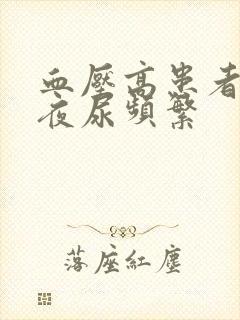 血壓高患者
夜尿頻繁
落座紅塵